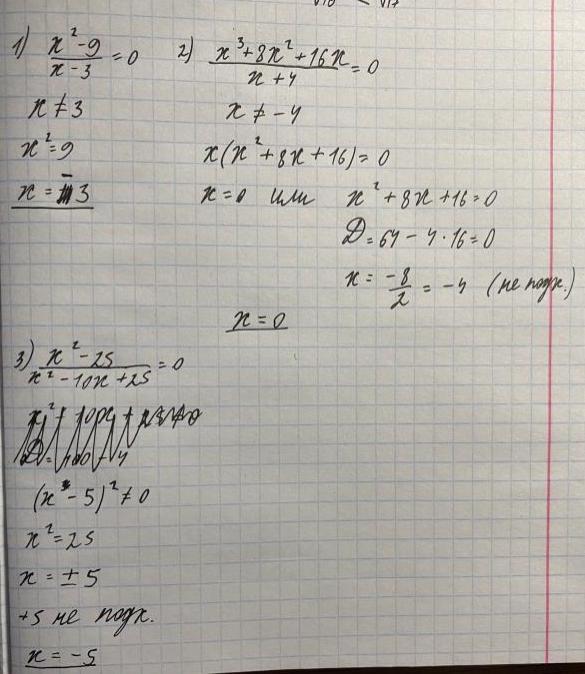 1) (x² - 9)/(x - 3) = 0
x ≠ 3
x² = 9
x = -3
2) (x³ + 8x² + 16x)/(x + 4) = 0
x ≠ -4
x(x² + 8x + 16) = 0
x = 0 или x² + 8x + 16 = 0
D = 64 - 4 · 16 = 0
x = -8/2 = -4 (не подх.)
x = 0
3) (x² - 25)/(x² - 10x + 25) = 0
(x - 5)² ≠ 0
x² = 25
x = ± 5
+5 не подх.
x = -5